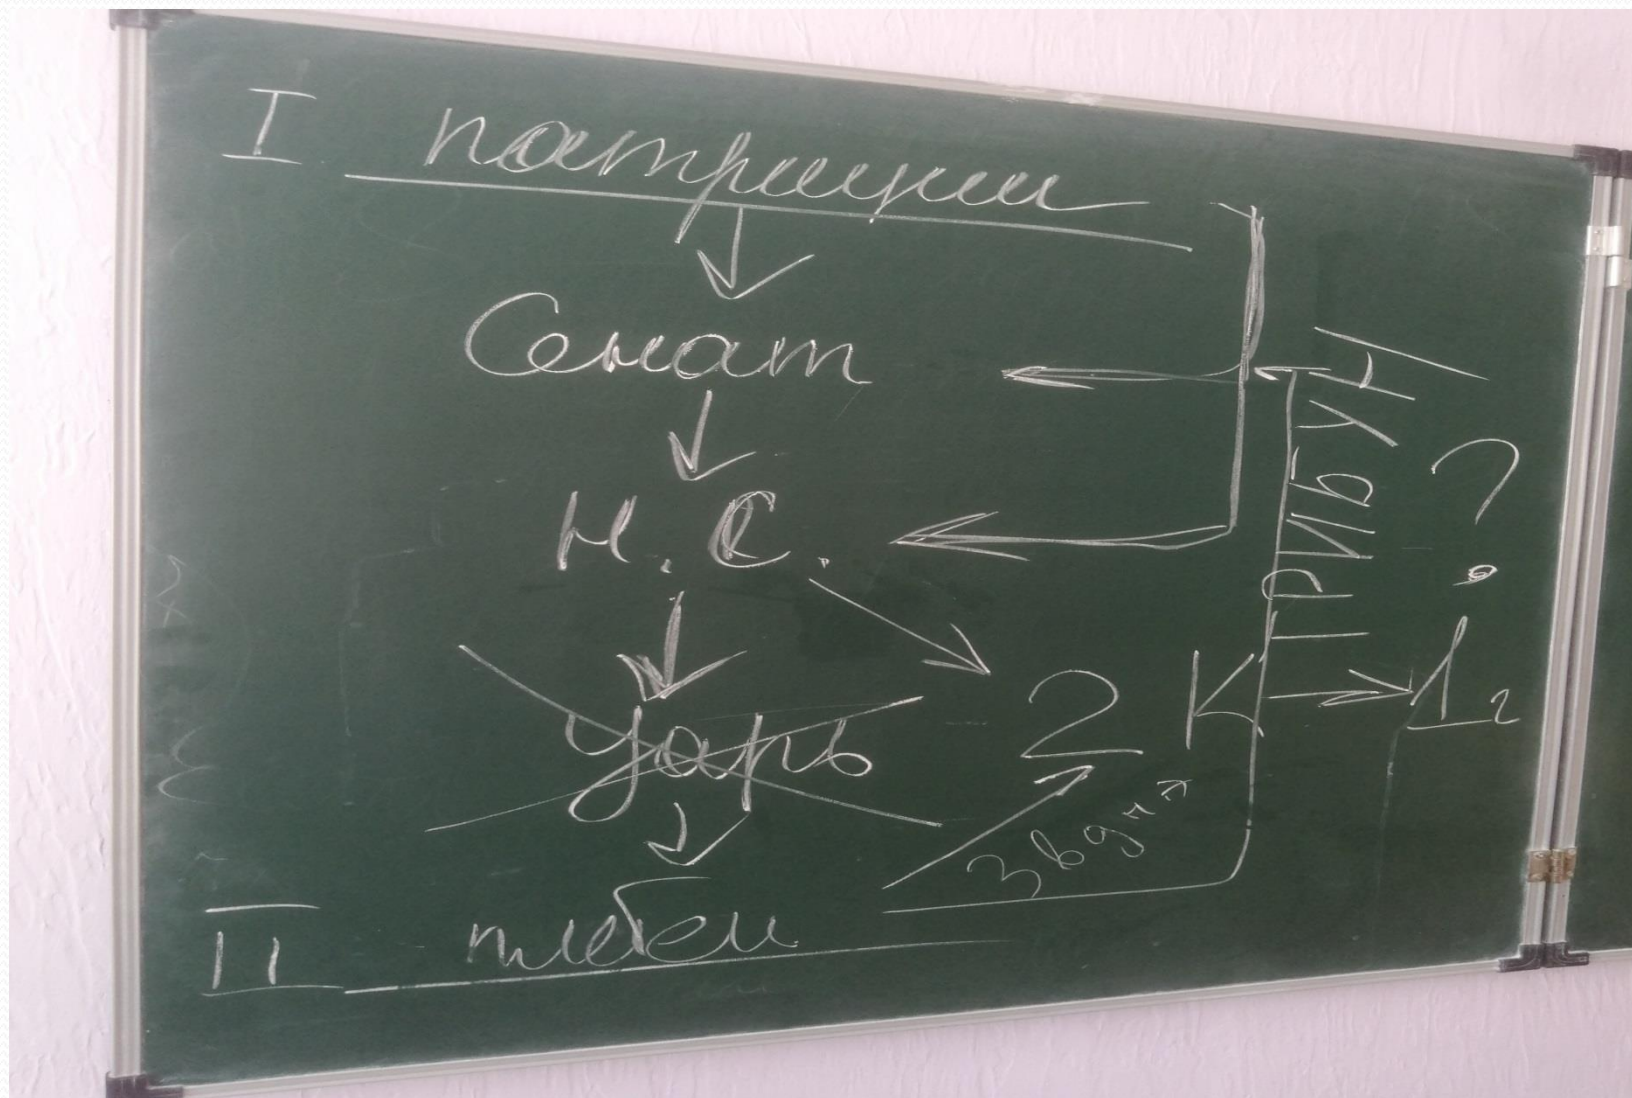 I патриции
Сенат
Н. С.
Царь
2 К
1 г
?
ТРИБУН
II плебеи